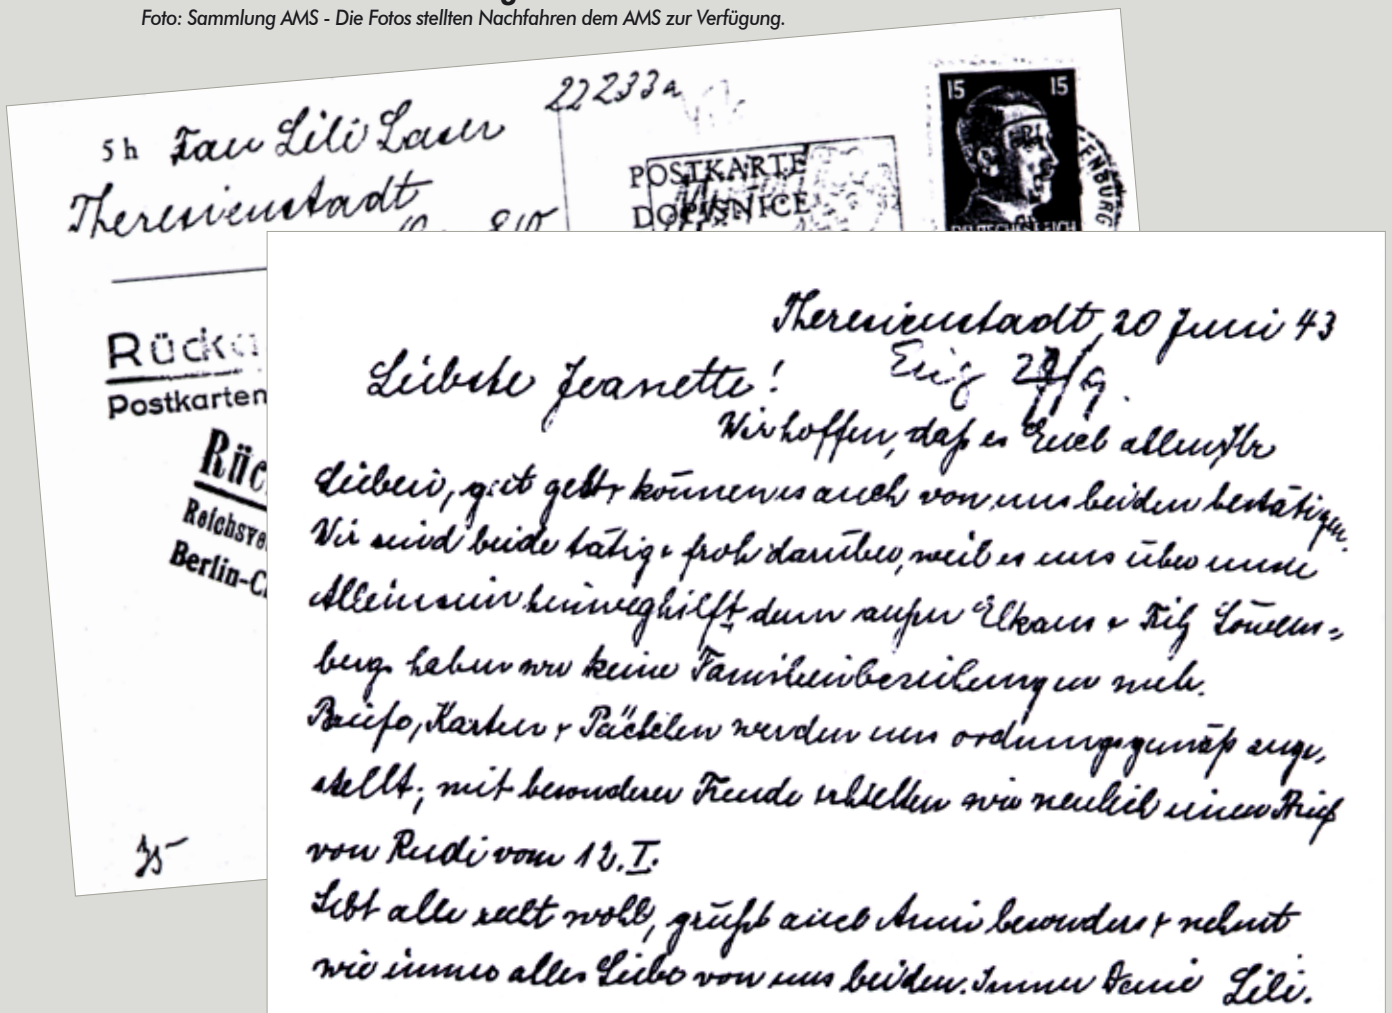 Foto: Sammlung AMS - Die Fotos stellten Nachfahren dem AMS zur Verfügung.
22233a
5 h Frau Lili Laser
Theresienstadt
810
POSTKARTE
DOPISNICE
15 15
DEUTSCHES REICH
ENBURG
Rück
Postkarten
Rüc
Reichsve
Berlin-C
35
Theresienstadt, 20 Juni 43
Liebste Jeanette!
Wir hoffen, daß es Euch allen, Ihr
Lieben, gut geht & können es auch von uns beiden bestätigen.
Wir sind beide tätig & froh darüber, weil es uns über unser
Alleinsein hinweghilft denn außer Elkans & Fritz Löwens=
berg haben wir keine Familienbeziehungen mehr.
Briefe, Karten & Päckchen werden uns ordnungsgemäß zuge,
stellt; mit besonderer Freude erhielten wir neulich einen Brief
von Rudi vom 12. I.
Lebt alle recht wohl, grüßt auch Anni besonders & nehmt
wie immer alles Liebe von uns beiden. Immer Deine Lili.